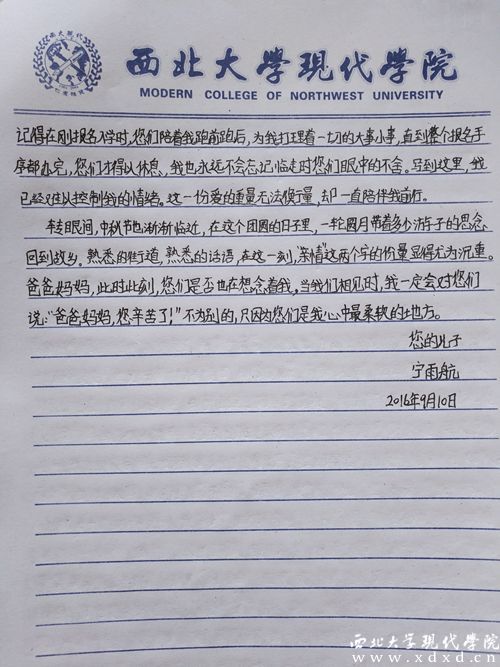 西北大学现代学院
MODERN COLLEGE OF NORTHWEST UNIVERSITY
记得在刚报名入学时,您们陪着我跑前跑后,为我打理着一切的大事小事,直到整个报名手
序都办完,您们才得以休息、我也永远不会忘记临走时您们眼中的不舍。写到这里,我
已经难以控制我的情绪。这一份爱的重量无法衡量,却一直陪伴我前行。
转眼间,中秋节也渐渐临近,在这个团圆的日子里,一轮圆月带着多少游子的思念
回到故乡。熟悉的街道,熟悉的话语,在这一刻,“亲情”这两个字的份量显得尤为沉重。
爸爸妈妈,此时此刻,您们是否也在想念着我。当我们相见时,我一定会对您们
说:“爸爸妈妈,您辛苦了!”不为别的,只因为您们是我心中最柔软的地方。
您的儿子
宁雨航
2016年9月10日
西北大学现代学院
www.xdxd.cn